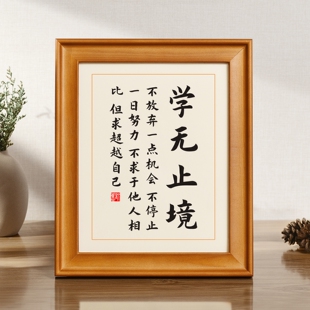 学无止境
不放弃一点机会 不停止
一日努力 不求于他人相
比 但求超越自己